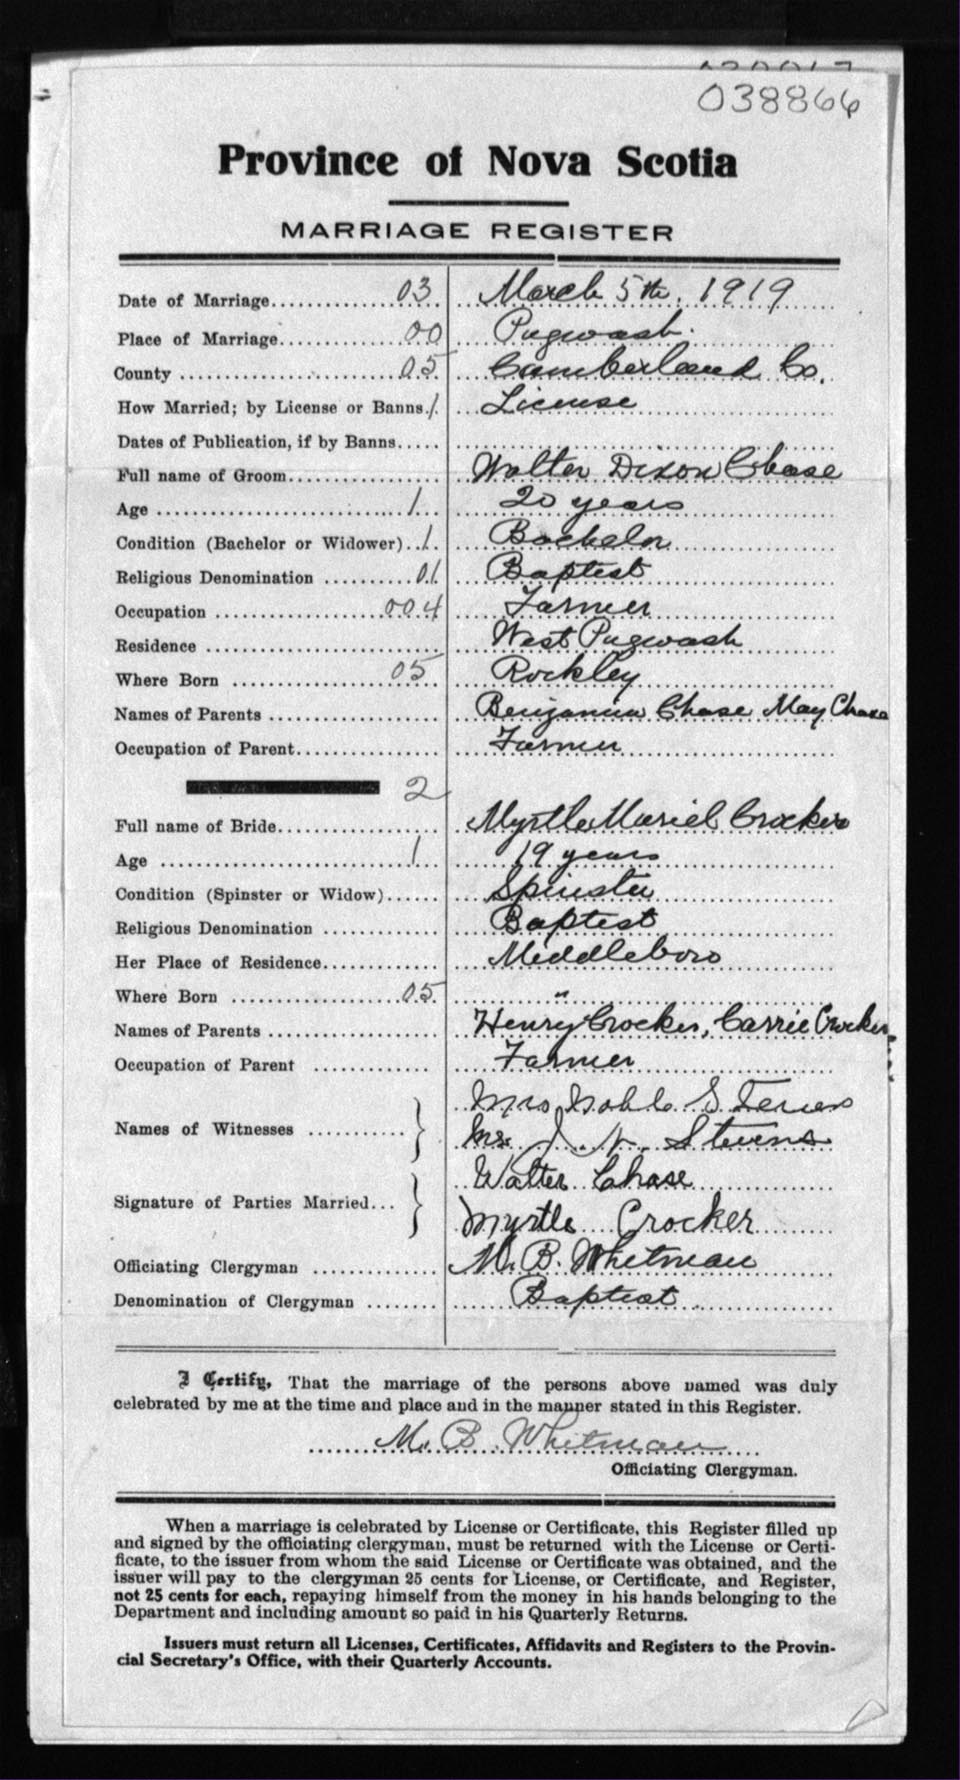 038866
Province of Nova Scotia
MARRIAGE REGISTER
Date of Marriage 03 March 5th, 1919
Place of Marriage 00 Pugwash.
County 05 Cumberland Co.
How Married; by License or Banns 1 License
Dates of Publication, if by Banns
Full name of Groom Walter Dixon Chase
Age 1 20 years
Condition (Bachelor or Widower) 1 Bachelor
Religious Denomination 01 Baptist
Occupation 004 Farmer
Residence West Pugwash
Where Born 05 Rockley
Names of Parents Benjamin Chase May Chase
Occupation of Parent Farmer
2
Full name of Bride Myrtle Muriel Crocker
Age 1 19 years
Condition (Spinster or Widow) Spinster
Religious Denomination Baptist
Her Place of Residence Middleboro
Where Born 05 "
Names of Parents Henry Crocker, Carrie Crocker
Occupation of Parent Farmer
Names of Witnesses Mrs
Stevens
Signature of Parties Married Walter Chase
Myrtle Crocker
Officiating Clergyman M. B. Whitman
Denomination of Clergyman Baptist
I Certify, That the marriage of the persons above named was duly
celebrated by me at the time and place and in the manner stated in this Register.
M. B. Whitman
Officiating Clergyman.
When a marriage is celebrated by License or Certificate, this Register filled up
and signed by the officiating clergyman, must be returned with the License or Certi-
ficate, to the issuer from whom the said License or Certificate was obtained, and the
issuer will pay to the clergyman 25 cents for License, or Certificate, and Register,
not 25 cents for each, repaying himself from the money in his hands belonging to the
Department and including amount so paid in his Quarterly Returns.
Issuers must return all Licenses, Certificates, Affidavits and Registers to the Provin-
cial Secretary's Office, with their Quarterly Accounts.